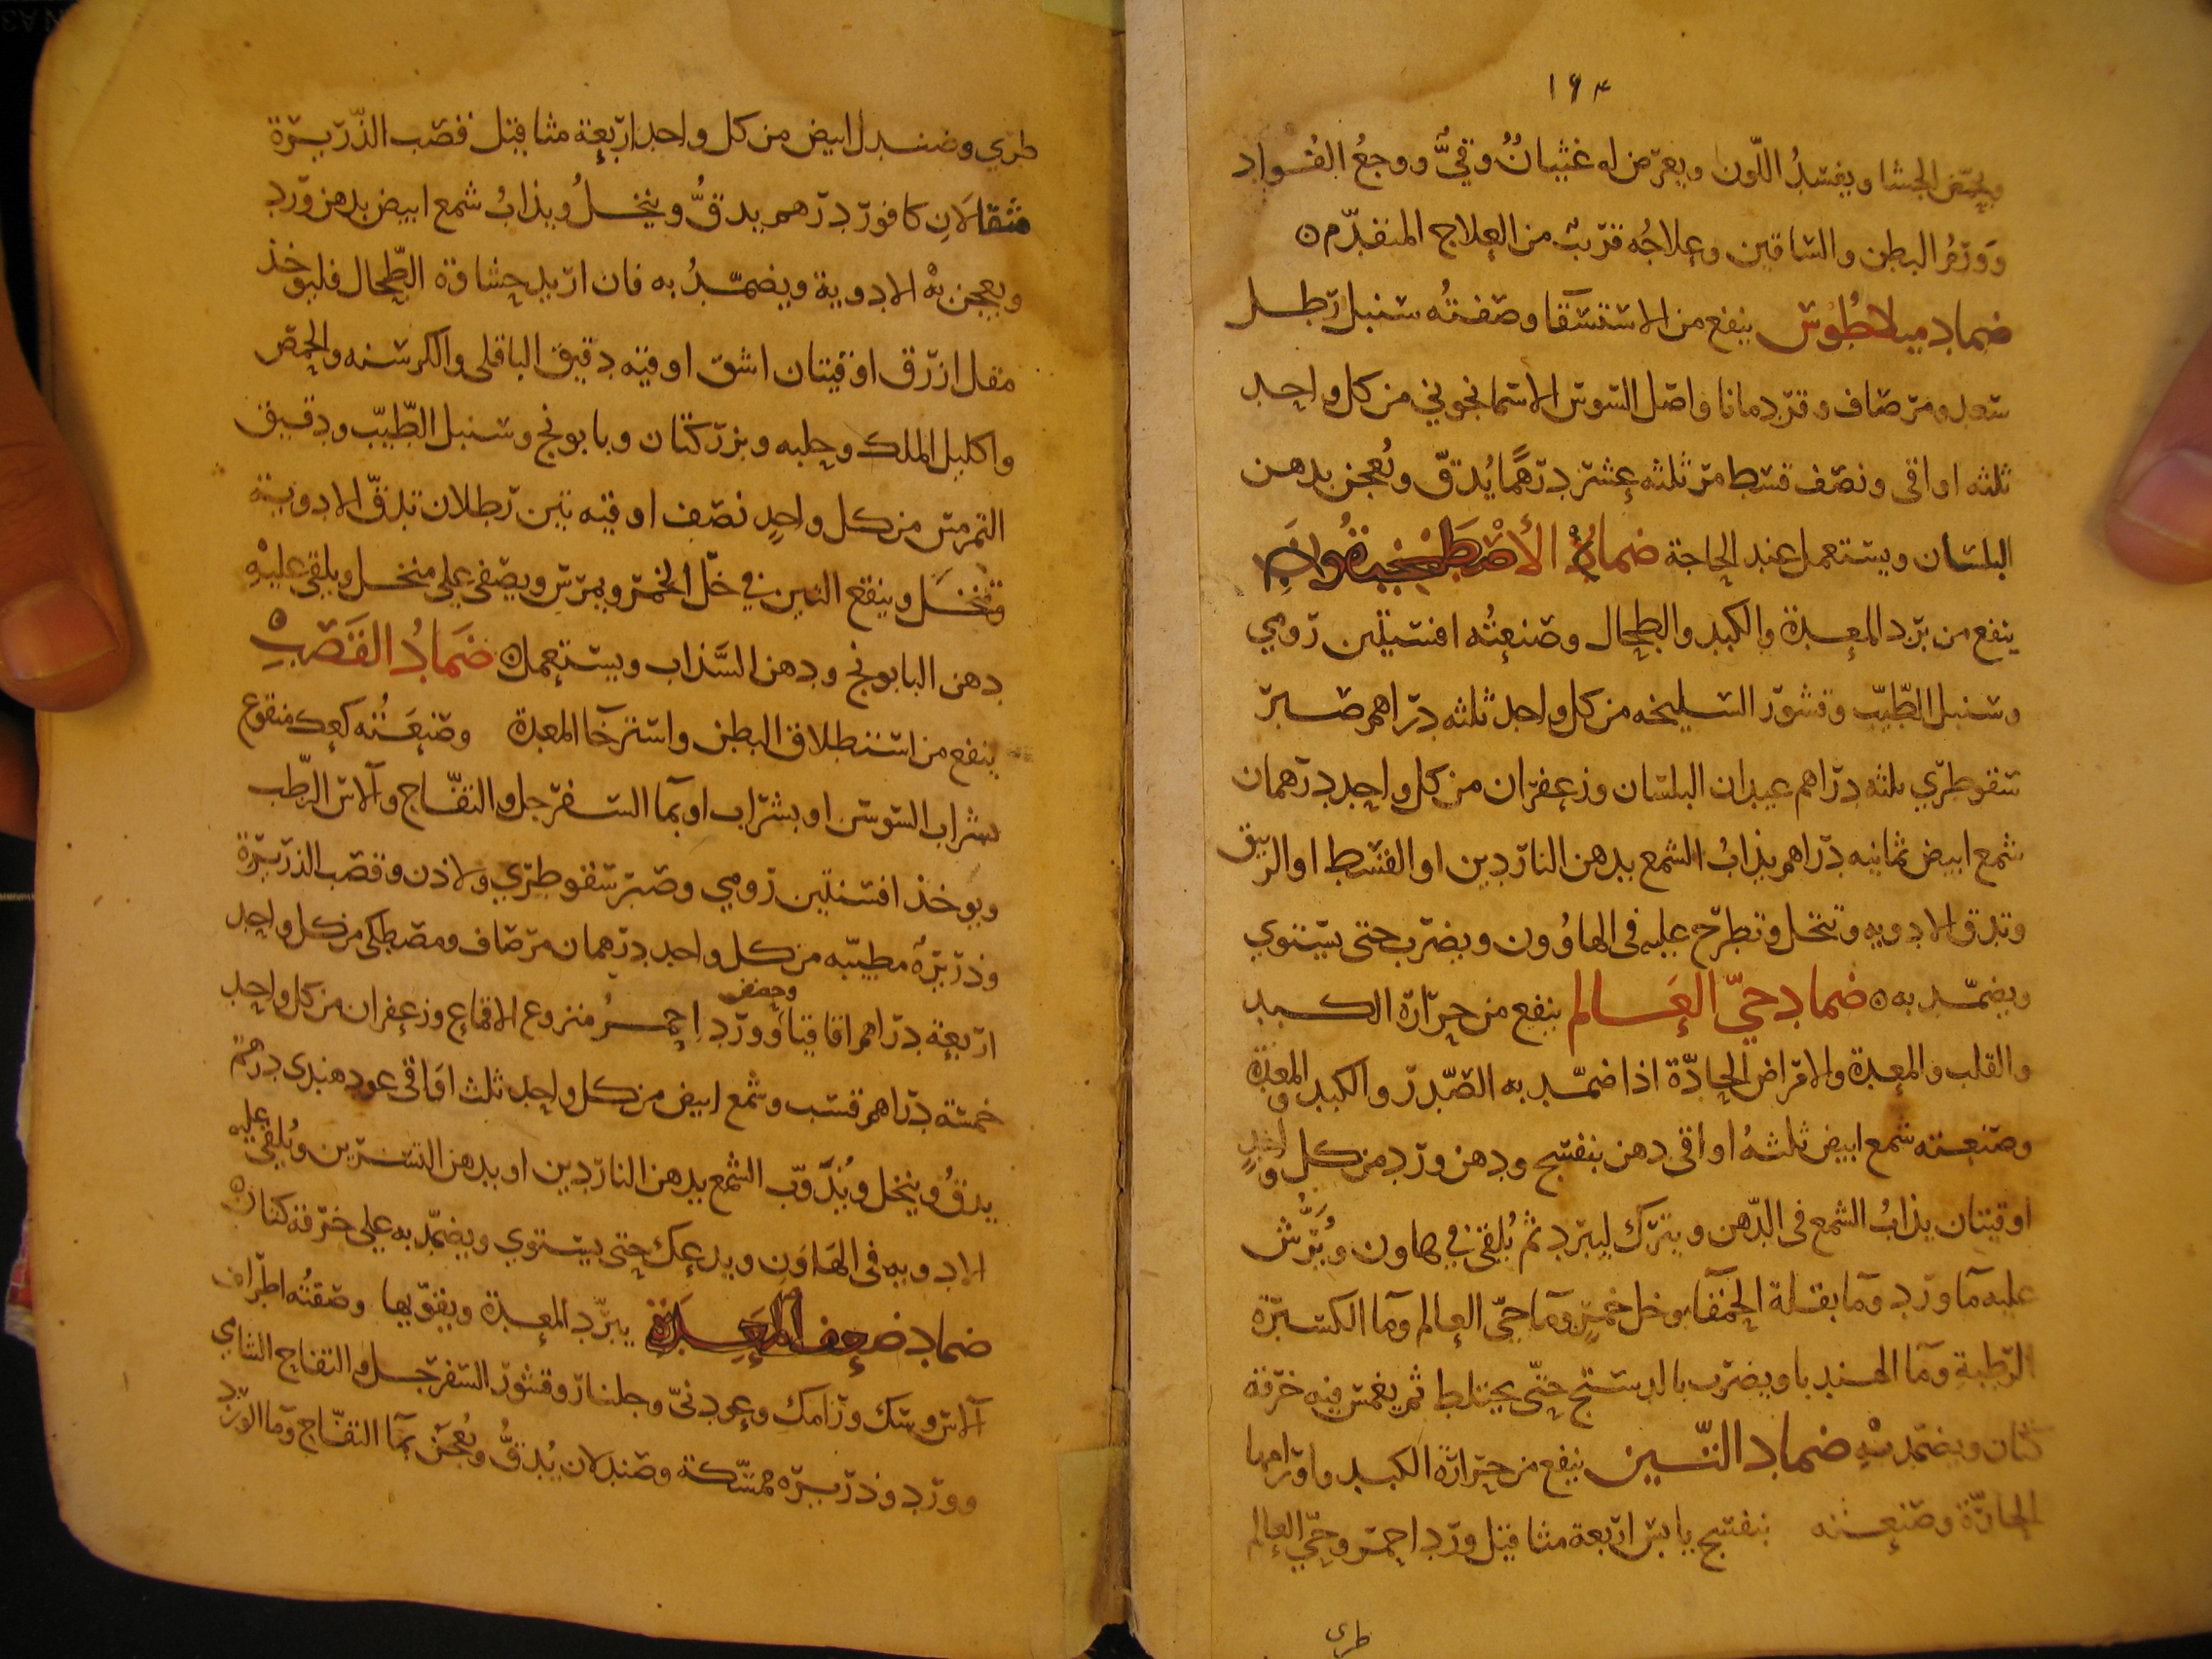 ١٩٤
ويحمّض الجشا ويفسدُ اللّون ويعرض له غثيانٌ وقيٌّ ووجعُ الفُواد
وَورَمُ البطن والساقين وعلاجُه قريبٌ من العلاج المتقدّم ه
ضماد ميلاطُوس ينفع من الاستسقا وصفتُه سنبل رطل
سعد ومر صاف وقردمانا واصل السوس الاسمانجوني من كل واحد
ثلثه اواقى ونصف قسط مر ثلثه عشر درهمًا يُدقّ ويُعجن بدهن
البلسان ويستعمل عند الحاجة ضمادُ
ينفع من برد المعدة والكبد والطحال وصنعتُه افسنتين رومي
وسنبل الطّيب وقشور السليخه من كل واحد ثلثه دراهم صبر
سقوطري ثلثه دراهم عيدان البلسان وزعفران من كل واحد درهمان
شمع ابيض ثمانيه دراهم يذابُ الشمع بدهن الناردين او القسط او الزيبق
وتدق الادويه وتنخل وتطرح عليه فى الهاوُون ويضرب حتى يستوي
ويضمّد به ه ضماد حيّ العَالم ينفع من حرارة الكبد
والقلب والمعدة والامراض الحادّة اذا ضمّد به الصّدر والكبد والمعدة
وصنعته شمع ابيض ثلثهُ اواقى دهن بنفسج ودهن ورد من كل واحدٍ
اوقيتان يذابُ الشمع فى الدّهن ويترك ليبرد ثم يُلقى في هاون ويُرَشُّ
عليه مآ ورد ومآ بقلة الحمقآ وخل خمرٍ ومآ حيّ العالم ومآ الكسبرة
الرّطبة ومآ الهندبا ويضرب بالدستج حتّى يختلط ثم يغمس فيه خرقة
كتان ويضمّد بهْ ضماد التّين ينفع من حرارة الكبد واورامها
الحادّة وصنعته بنفسج يابس اربعة مثاقيل ورد احمر وحيّ العالم
طرى
طري وصندل ابيض من كل واحد اربعة مثاقيل قصب الذّريرة
مثقالَانِ كافور درهم يدقُّ وينخلُ ويذابُ شمع ابيض بدهن ورد
ويعجن بهْ الادوية ويضمّدُ به فان اريد جساوة الطّحال فليوخذ
مقل ازرق اوقيتان اشق اوقيه دقيق الباقلى والكرسنه والحمص
واكليل الملك وحلبه وبزر كتّان وبابونج وسنبل الطّيب ودقيق
الترمس من كل واحدٍ نصف اوقيه تين رطلان تدقّ الادوية
وتنخل وينقع التين في خلّ الخمر ويمرس ويصفى على منخل ويلقى عليهْ
دهن البابونج ودهن السَّذاب ويستعمل ه ضَمادُ القَصَبِ ه
ينفع من استطلاق البطن واسترخآ المعدة وصَنعَتُه كعك منقوع
بشراب السوسن او بشراب او بمآ السفرجل والتفّاح والآس الرّطب
ويوخذ افسنتين رومي وصبر سقوطري ولاذن وقصب الذريرة
وذريرةُ مطيّبه من كل واحد درهمان مر صاف ومصطكى من كل واحد
اربعة دراهم اقاقيا وحضض وورد احمرُ منزوع الاقماع وزعفران من كل واحد
خمسة دراهم قسب وشمع ابيض من كل واحد ثلث اواقى عود هندى درهم
يدقُّ وينخل ويُذَوّب الشمع بدهن الناردين او بدهن النسرين ويُلقى عليه
الادويه فى الهَاوَن ويدعك حتى يستوي ويضمّد به على خرقة كتان ه
ضماد ضعف المَعِدَة يبرّد المعدة ويقوّيها وصفتُه اطراف
آلاس وسك ورامك وعود نىّ وجلنار وقشور السفرجل والتفاح الشامي
وورد وذريره ممسّكة وصندلان يُدقُّ ويُعجَن بمآ التفّاح ومآ الورد